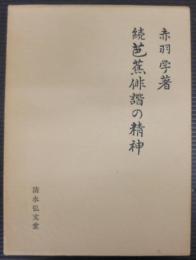 赤羽学著
続芭蕉俳諧の精神
清水弘文堂